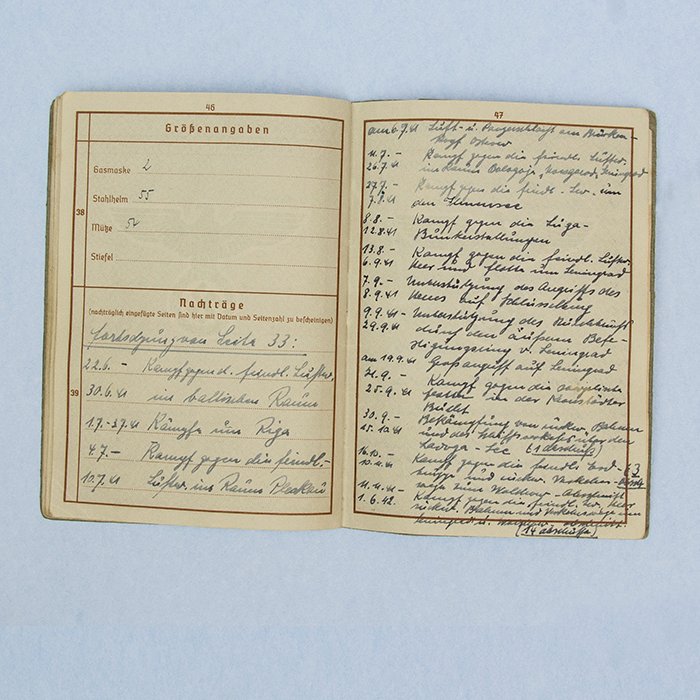 46
Größenangaben
Gasmaske 2
Stahlhelm 55
Mütze
Stiefel
38
Nachträge
(nachträglich eingefügte Seiten sind hier mit Datum und Seitenzahl zu bescheinigen)
Fortsetzung von Seite 33:
22.6.- Kampf gegen d. feindl. Luftw.
39
30.6.41 im baltischen Raum
1.7.-3.7.41 Kämpfe um Riga
4.7.- Kampf gegen die feindl.-
10.7.41 Luftw. im Raume Pleskau
47
am 6.7.41 Luft- u. Panzerschlacht am Brücken-
kopf Ostrow
11.7.- Kampf gegen die feindl. Luftw.
26.7.41 im Raum Nowgorod, Leningrad
27.7.- Kampf gegen die feindl. Lw. um
7.8.41 den Ilmensee
8.8.- Kampf gegen die Luga-
12.8.41 Bunkerstellungen
13.8.- Kampf gegen die feindl. Luftw.
6.9.41 Heer und Flotte um Leningrad
7.9.- Unterstützung des Angriffs des
8.9.41 Heeres auf Schlüsselburg
9.9.41- Unterstützung des
29.9.41 durch den äußeren Befe-
stigungsring v. Leningrad
am 19.9.41 Großangriff auf Leningrad
21.9.- Kampf gegen die
25.9.41 in der Kronstädter
Bucht
30.9.- Bekämpfung von Bahnen
und des Schiffsverkehrs über den
Ladoga-See (1 Abschuß)
Kampf gegen die feindl. (3
und rückw. Verkehrs-
wege zum Wolchow-Abschnitt
1.6.42. Kampf gegen die feindl. Lw, Heer
rückw. Bahnen und Verkehrswege um
Leningrad u.
(14 Abschüsse)